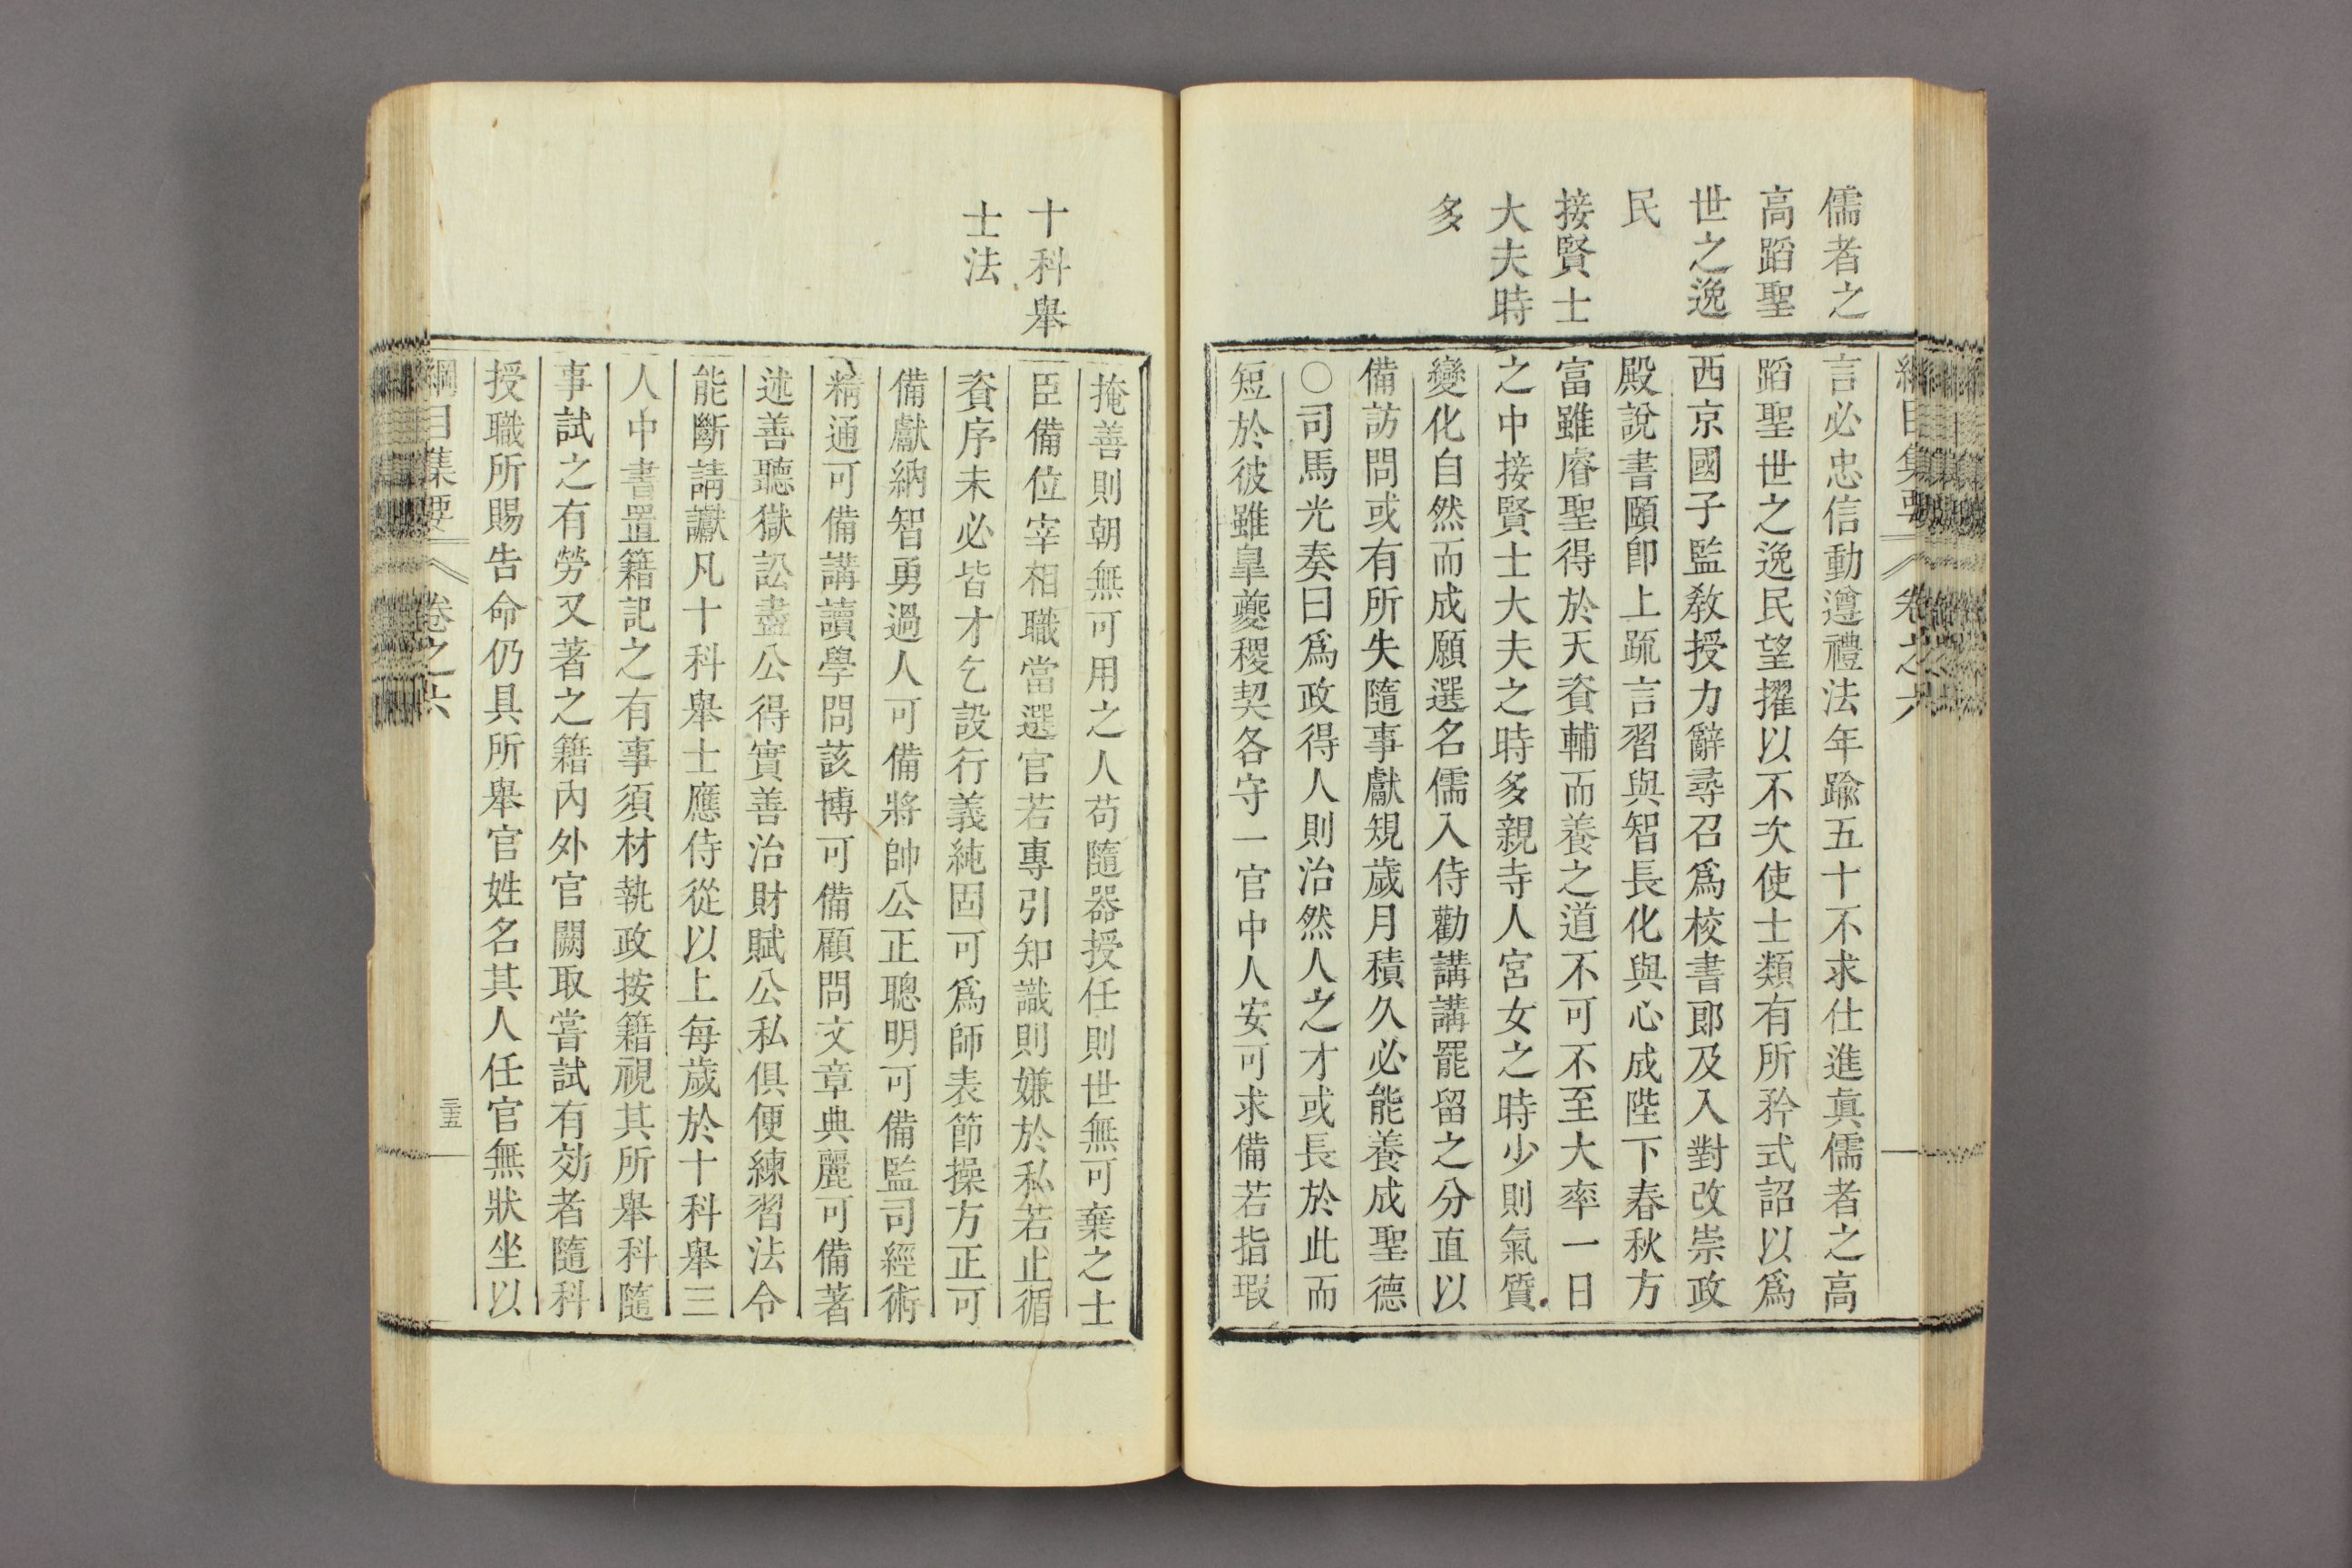 儒者之
高蹈聖
世之逸
民
接賢士
大夫時
多
言必忠信動遵禮法年踰五十不求仕進眞儒者之高
蹈聖世之逸民望擢以不次使士類有所矜式詔以爲
西京國子監敎授力辭尋召爲校書郎及入對改崇政
殿說書頤卽上䟽言習與智長化與心成陛下春秋方
富雖睿聖得於天資輔而養之道不可不至大率一日
之中接賢士大夫之時多親寺人宮女之時少則氣質
變化自然而成願選名儒入侍勸講講罷留之分直以
備訪問或有所失隨事獻規歲月積久必能養成聖德
○司馬光奏曰爲政得人則治然人之才或長於此而
短於彼雖皐夔稷契各守一官中人安可求備若指瑕
十科舉
士法
掩善則朝無可用之人苟隨器授任則世無可棄之士
臣備位宰相職當選官若專引知識則嫌於私若止循
資序未必皆才乞設行義純固可爲師表節操方正可
備獻納智勇過人可備將帥公正聰明可備監司經術
精通可備講讀學問該博可備顧問文章典麗可備著
述善聽獄訟盡公得實善治財賦公私俱便練習法令
能斷請讞凡十科舉士應侍從以上每歲於十科舉三
人中書置籍記之有事須材執政按籍視其所舉科隨
事試之有勞又著之籍內外官闕取嘗試有効者隨科
授職所賜告命仍具所舉官姓名其人任官無狀坐以
綱目集要 卷之六 三五